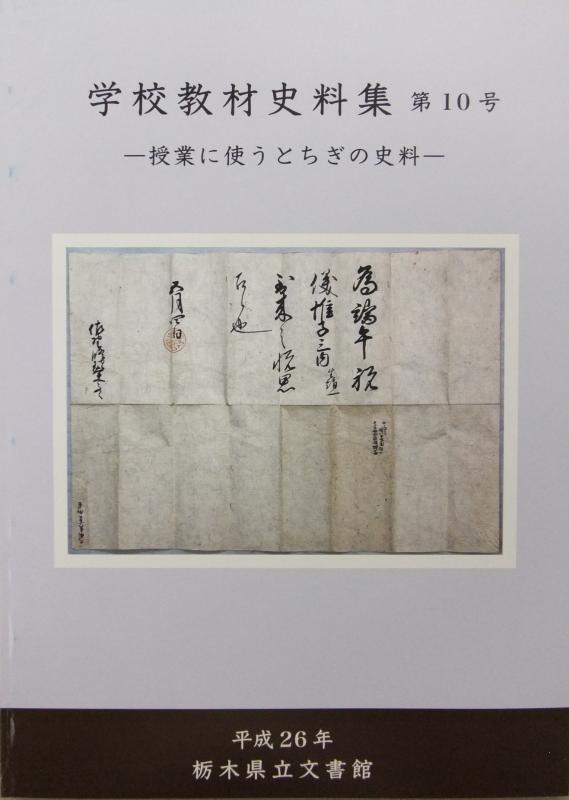 学校教材史料集 第10号
―授業に使うとちぎの史料―
為端午祝
儀帷子三内
到来之悦思
召候也
五月四日
平成26年
栃木県立文書館